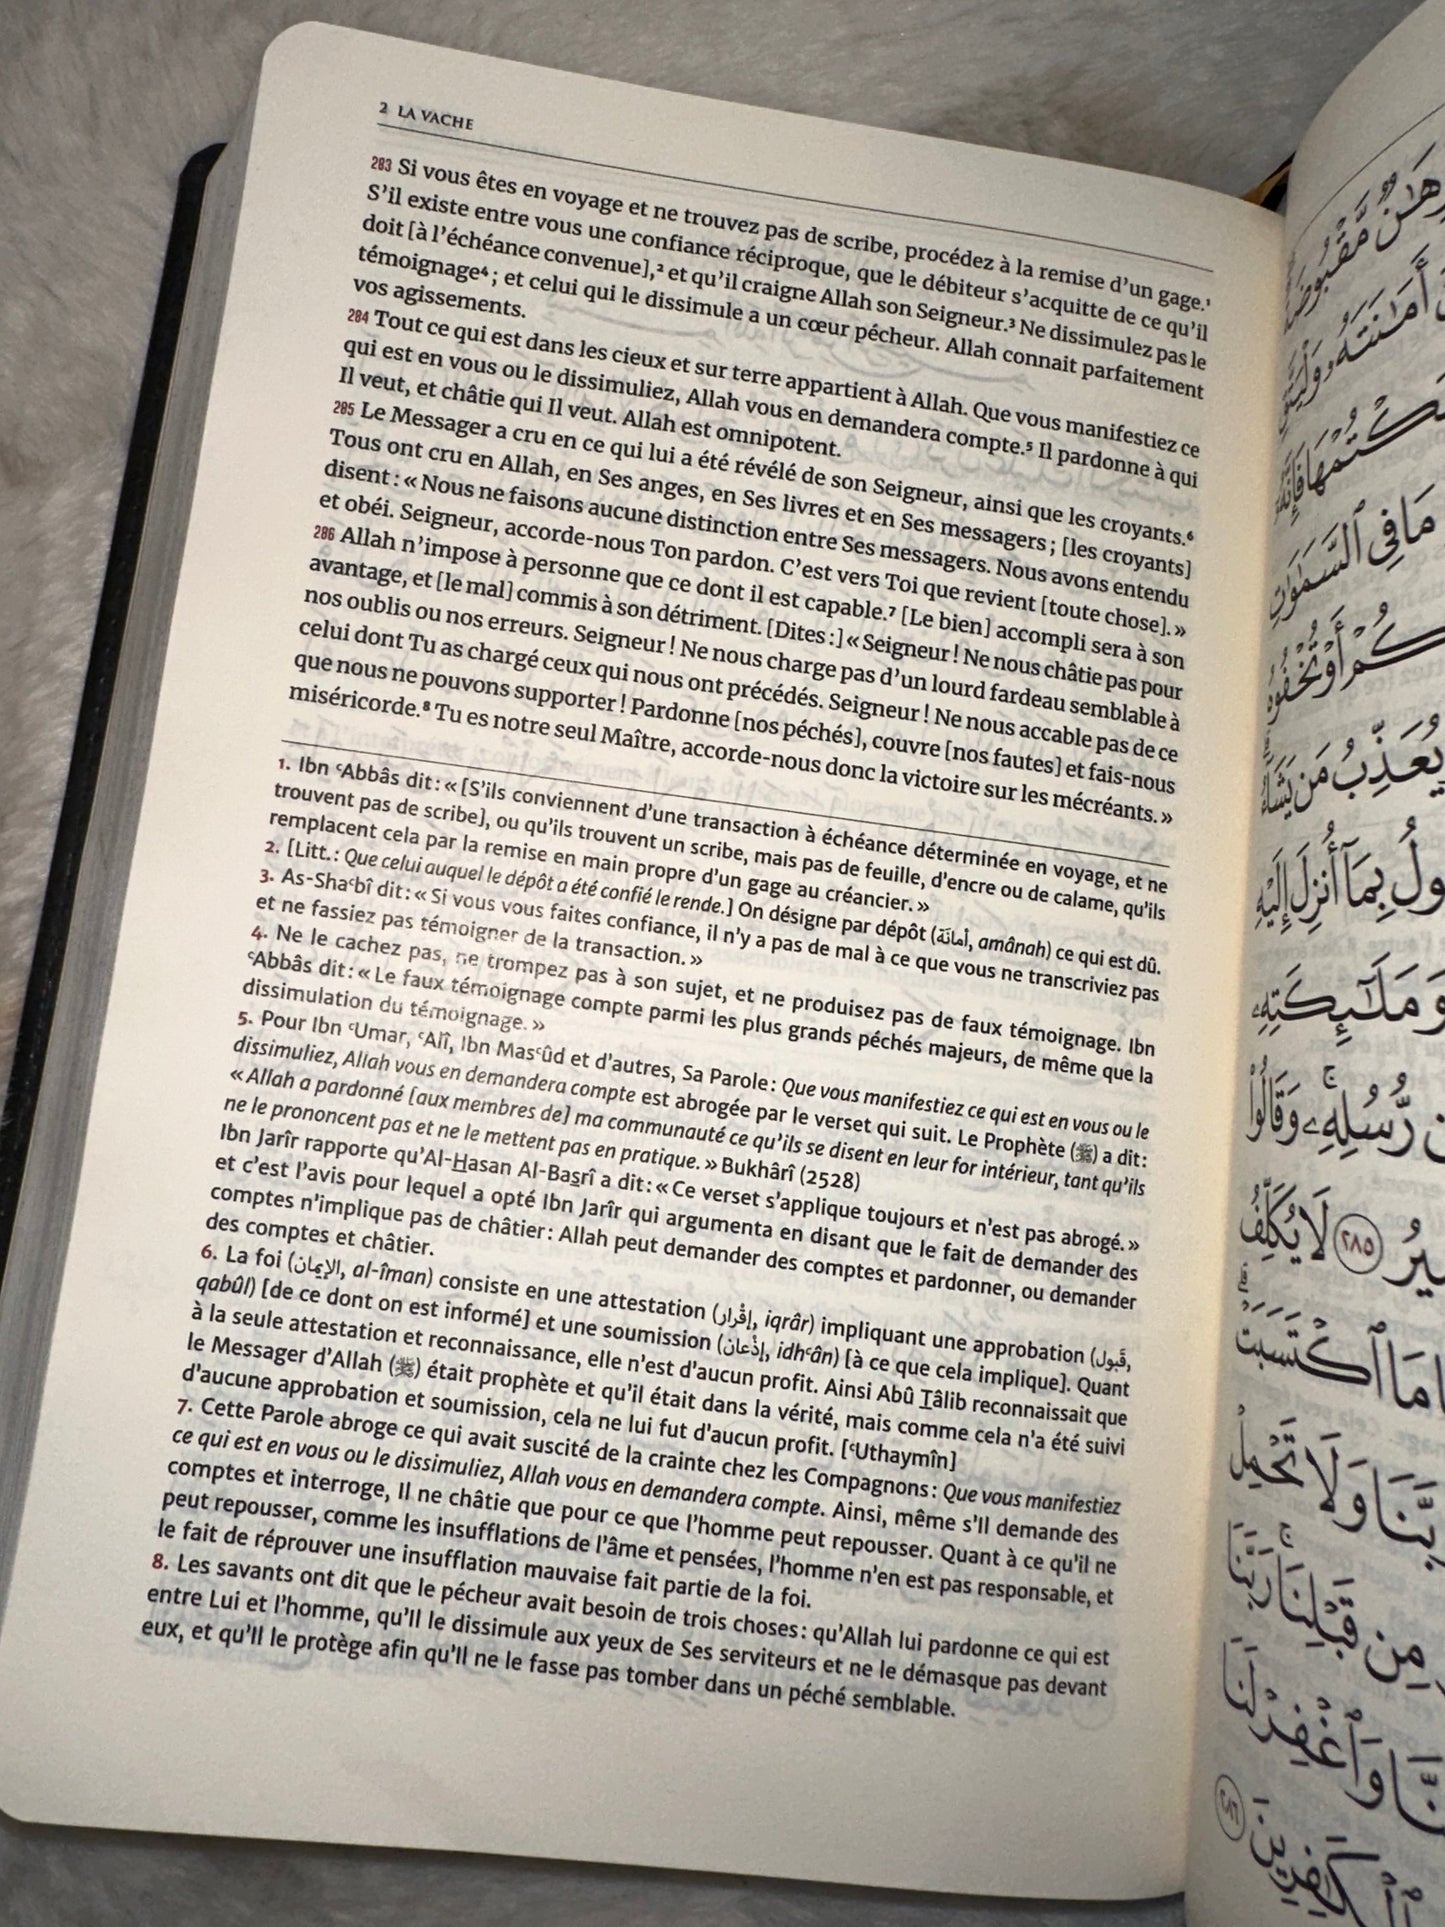 2 LA VACHE
283 Si vous êtes en voyage et ne trouvez pas de scribe, procédez à la remise d'un gage.¹
S'il existe entre vous une confiance réciproque, que le débiteur s'acquitte de ce qu'il
doit [à l'échéance convenue],² et qu'il craigne Allah son Seigneur.³ Ne dissimulez pas le
témoignage⁴ ; et celui qui le dissimule a un cœur pécheur. Allah connait parfaitement
vos agissements.
284 Tout ce qui est dans les cieux et sur terre appartient à Allah. Que vous manifestiez ce
qui est en vous ou le dissimuliez, Allah vous en demandera compte.⁵ Il pardonne à qui
Il veut, et châtie qui Il veut. Allah est omnipotent.
285 Le Messager a cru en ce qui lui a été révélé de son Seigneur, ainsi que les croyants.⁶
Tous ont cru en Allah, en Ses anges, en Ses livres et en Ses messagers ; [les croyants]
disent : « Nous ne faisons aucune distinction entre Ses messagers. Nous avons entendu
et obéi. Seigneur, accorde-nous Ton pardon. C'est vers Toi que revient [toute chose]. »
286 Allah n'impose à personne que ce dont il est capable.⁷ [Le bien] accompli sera à son
avantage, et [le mal] commis à son détriment. [Dites :] « Seigneur ! Ne nous châtie pas pour
nos oublis ou nos erreurs. Seigneur ! Ne nous charge pas d'un lourd fardeau semblable à
celui dont Tu as chargé ceux qui nous ont précédés. Seigneur ! Ne nous accable pas de ce
que nous ne pouvons supporter ! Pardonne [nos péchés], couvre [nos fautes] et fais-nous
miséricorde.⁸ Tu es notre seul Maître, accorde-nous donc la victoire sur les mécréants. »
1. Ibn ʿAbbâs dit : « [S'ils conviennent d'une transaction à échéance déterminée en voyage, et ne
trouvent pas de scribe], ou qu'ils trouvent un scribe, mais pas de feuille, d'encre ou de calame, qu'ils
remplacent cela par la remise en main propre d'un gage au créancier. »
2. [Litt. : Que celui auquel le dépôt a été confié le rende.] On désigne par dépôt (أَمَانَة, amânah) ce qui est dû.
3. As-Shaʿbî dit : « Si vous vous faites confiance, il n'y a pas de mal à ce que vous ne transcriviez pas
et ne fassiez pas témoigner de la transaction. »
4. Ne le cachez pas, ne trompez pas à son sujet, et ne produisez pas de faux témoignage. Ibn
ʿAbbâs dit : « Le faux témoignage compte parmi les plus grands péchés majeurs, de même que la
dissimulation du témoignage. »
5. Pour Ibn ʿUmar, ʿAlî, Ibn Masʿûd et d'autres, Sa Parole : Que vous manifestiez ce qui est en vous ou le
dissimuliez, Allah vous en demandera compte est abrogée par le verset qui suit. Le Prophète (ﷺ) a dit :
« Allah a pardonné [aux membres de] ma communauté ce qu'ils se disent en leur for intérieur, tant qu'ils
ne le prononcent pas et ne le mettent pas en pratique. » Bukhârî (2528)
Ibn Jarîr rapporte qu'Al-Hasan Al-Basrî a dit : « Ce verset s'applique toujours et n'est pas abrogé. »
et c'est l'avis pour lequel a opté Ibn Jarîr qui argumenta en disant que le fait de demander des
comptes n'implique pas de châtier : Allah peut demander des comptes et pardonner, ou demander
des comptes et châtier.
6. La foi (الإِيمَان, al-îman) consiste en une attestation (إِقْرَار, iqrâr) impliquant une approbation (قَبُول,
qabûl) [de ce dont on est informé] et une soumission (إِذْعَان, idhʿân) [à ce que cela implique]. Quant
à la seule attestation et reconnaissance, elle n'est d'aucun profit. Ainsi Abû Tâlib reconnaissait que
le Messager d'Allah (ﷺ) était prophète et qu'il était dans la vérité, mais comme cela n'a été suivi
d'aucune approbation et soumission, cela ne lui fut d'aucun profit. [ʿUthaymîn]
7. Cette Parole abroge ce qui avait suscité de la crainte chez les Compagnons : Que vous manifestiez
ce qui est en vous ou le dissimuliez, Allah vous en demandera compte. Ainsi, même s'Il demande des
comptes et interroge, Il ne châtie que pour ce que l'homme peut repousser. Quant à ce qu'il ne
peut repousser, comme les insufflations de l'âme et pensées, l'homme n'en est pas responsable, et
le fait de réprouver une insufflation mauvaise fait partie de la foi.
8. Les savants ont dit que le pécheur avait besoin de trois choses : qu'Allah lui pardonne ce qui est
entre Lui et l'homme, qu'Il le dissimule aux yeux de Ses serviteurs et ne le démasque pas devant
eux, et qu'Il le protège afin qu'Il ne le fasse pas tomber dans un péché semblable.
مَّقْبُوضَةٌ
أَمَـٰنَتَهُۥ
مَا فِى ٱلسَّمَـٰوَٰتِ
أَوْ تُخْفُوهُ
يُعَذِّبُ مَن يَشَآءُ
بِمَآ أُنزِلَ إِلَيْهِ
وَمَلَـٰٓئِكَتِهِۦ
رُّسُلِهِۦ ۚ وَقَالُوا۟
٢٨٥ لَا يُكَلِّفُ
مَا ٱكْتَسَبَتْ ۗ
وَلَا تَحْمِلْ
مِن قَبْلِنَا ۚ رَبَّنَا
وَٱغْفِرْ لَنَا
٢٨٦